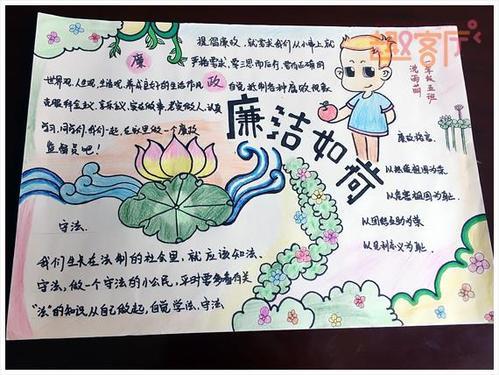 趣客厅
提倡廉政,就需求我们从小事上就
廉
严格要求,要三思而后行,要有正确的
世界观、人生观、生活观,养成良好的生活作风
政
自觉抵制各种腐败现象
克服拜金主义、享乐主义、实在做事、老实做人、认真
学习,同学们,我们一起,在这里做一个廉政
监督员吧!
廉洁如荷
年级五班
廉政格言
以热爱祖国为荣
以危害祖国为耻
以团结互助为荣
以见利忘义为耻
守法
我们生长在法制的社会里,就应该知法、
守法,做一个守法的小公民,平时要多看有关
"法"的知识从自己做起,自觉学法、守法